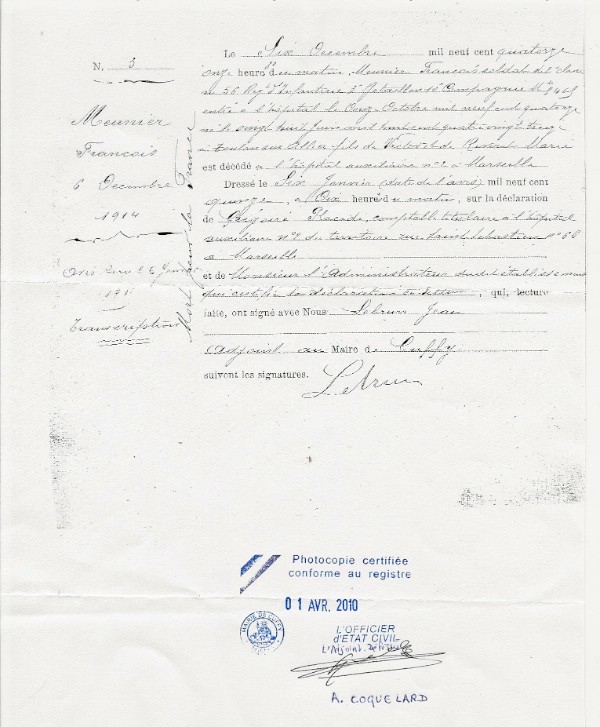 N. 3
Meunier
François
6 Decembre
1914
Transcription
Mort pour la France
Le Six Decembre mil neuf cent quatorze
onze heures du matin, Meunier François soldat de classe
au 56 Reg. d'Infanterie 10e Compagnie
entré à l'hôpital le Onze Octobre mil neuf cent quatorze
né le vingt huit mil huit cent quatre vingt treize
à sur Allier fils de et de Marie
est décédé à l'hôpital auxiliaire n° 2 à Marseille
Dressé le Six Janvier (date de l'avis) mil neuf cent
quinze, à Dix heures du matin, sur la déclaration
de Placide, comptable titulaire à l'hôpital
auxiliaire n° 2 du territoire rue Saint Sébastien n° 68
à Marseille
et de Monsieur l'Administrateur dudit établissement
qui certifie la déclaration , qui, lecture
faite, ont signé avec Nous Lebrun Jean
Adjoint au Maire de Cuffy
suivent les signatures.
Lebrun
Photocopie certifiée
conforme au registre
01 AVR. 2010
MAIRIE DE CUFFY
L'OFFICIER
d'ETAT CIVIL
L'Adjoint
A. COQUELARD